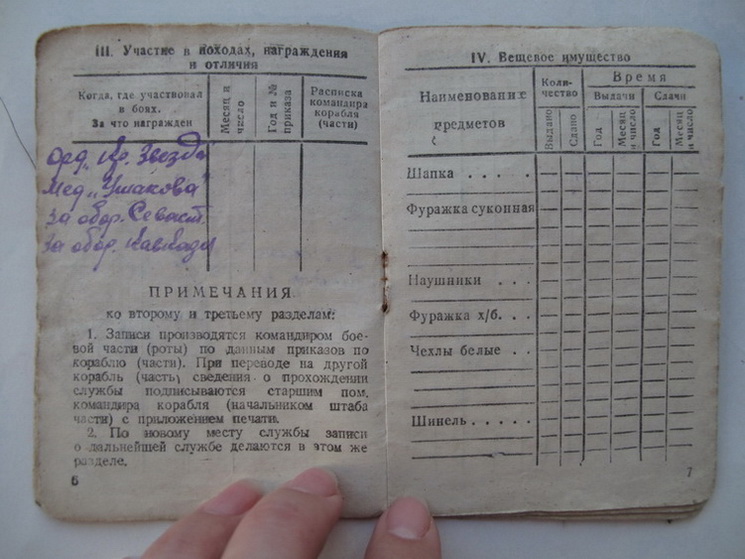 III. Участие в походах, награждения
и отличия
Когда, где участвовал
в боях.
За что награжден
Месяц и
число
Год и №
приказа
Расписка
командира
корабля
(части)
орд. „Кр. Звезды"
Мед. „Ушакова"
За обор. Севаст.
За обор. Кавказа
ПРИМЕЧАНИЯ
ко второму и третьему разделам:
1. Записи производятся командиром бое-
вой части (роты) по данным приказов по
кораблю (части). При переводе на другой
корабль (часть) сведения о прохождении
службы подписываются старшим пом.
командира корабля (начальником штаба
части) с приложением печати.
2. По новому месту службы записи
о дальнейшей службе делаются в этом же
разделе.
6
IV. Вещевое имущество
Наименование
предметов
Коли-
чество
Время
Выдачи
Сдачи
Выдано
Сдано
Год
Месяц
и число
Год
Месяц
и число
Шапка . . . .
Фуражка суконная
Наушники . . .
Фуражка х/б. . .
Чехлы белые . .
Шинель . . . . .
7